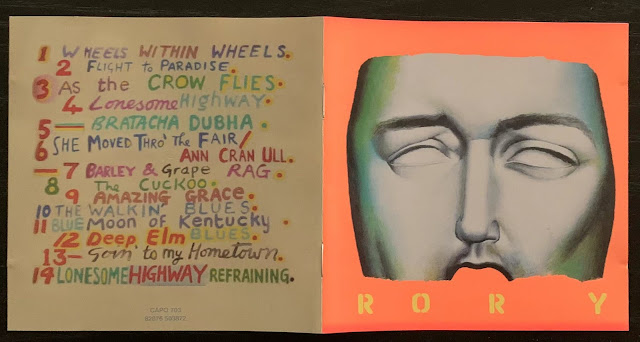 1 WHEELS WITHIN WHEELS.
2 FLIGHT to PARADISE.
3 AS the CROW FLIES.
4 Lonesome Highway.
5 — BRATACHA DUBHA.
6 SHE MOVED THRO' THE FAIR/
ANN CRAN ULL.
— 7 BARLEY & Grape RAG
8 The CUCKOO.
9 AMAZING GRACE.
10 THE WALKIN' BLUES.
11 BLUE Moon of Kentucky
12 Deep Elm BLUES.
13 — Goin' to my Hometown.
14 LONESOME HIGHWAY REFRAINING.
CAPO 703
RORY